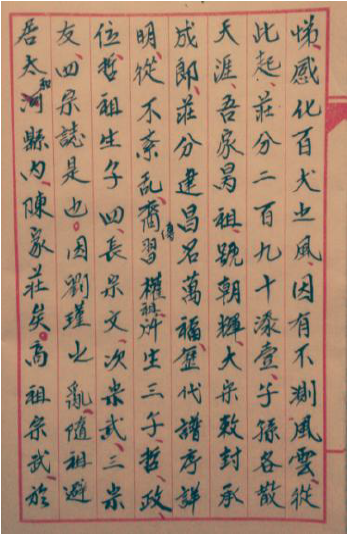 悌、感化百犬之風、因有不測風雲、從
此起、莊分二百九十漆壹、子孫各散
天涯、吾家昺祖、號朝輝、大宋敕封承
成郎、莊分建昌名萬福、歷代譜序詳
明、從不紊亂、裔習傳權生三子、哲、政、
位、哲祖生子四、長宗文、次宗武、三宗
友、四宗誌是也。因劉瑾之亂、隨祖避
居太和縣內、陳家莊矣。高祖宗武、於